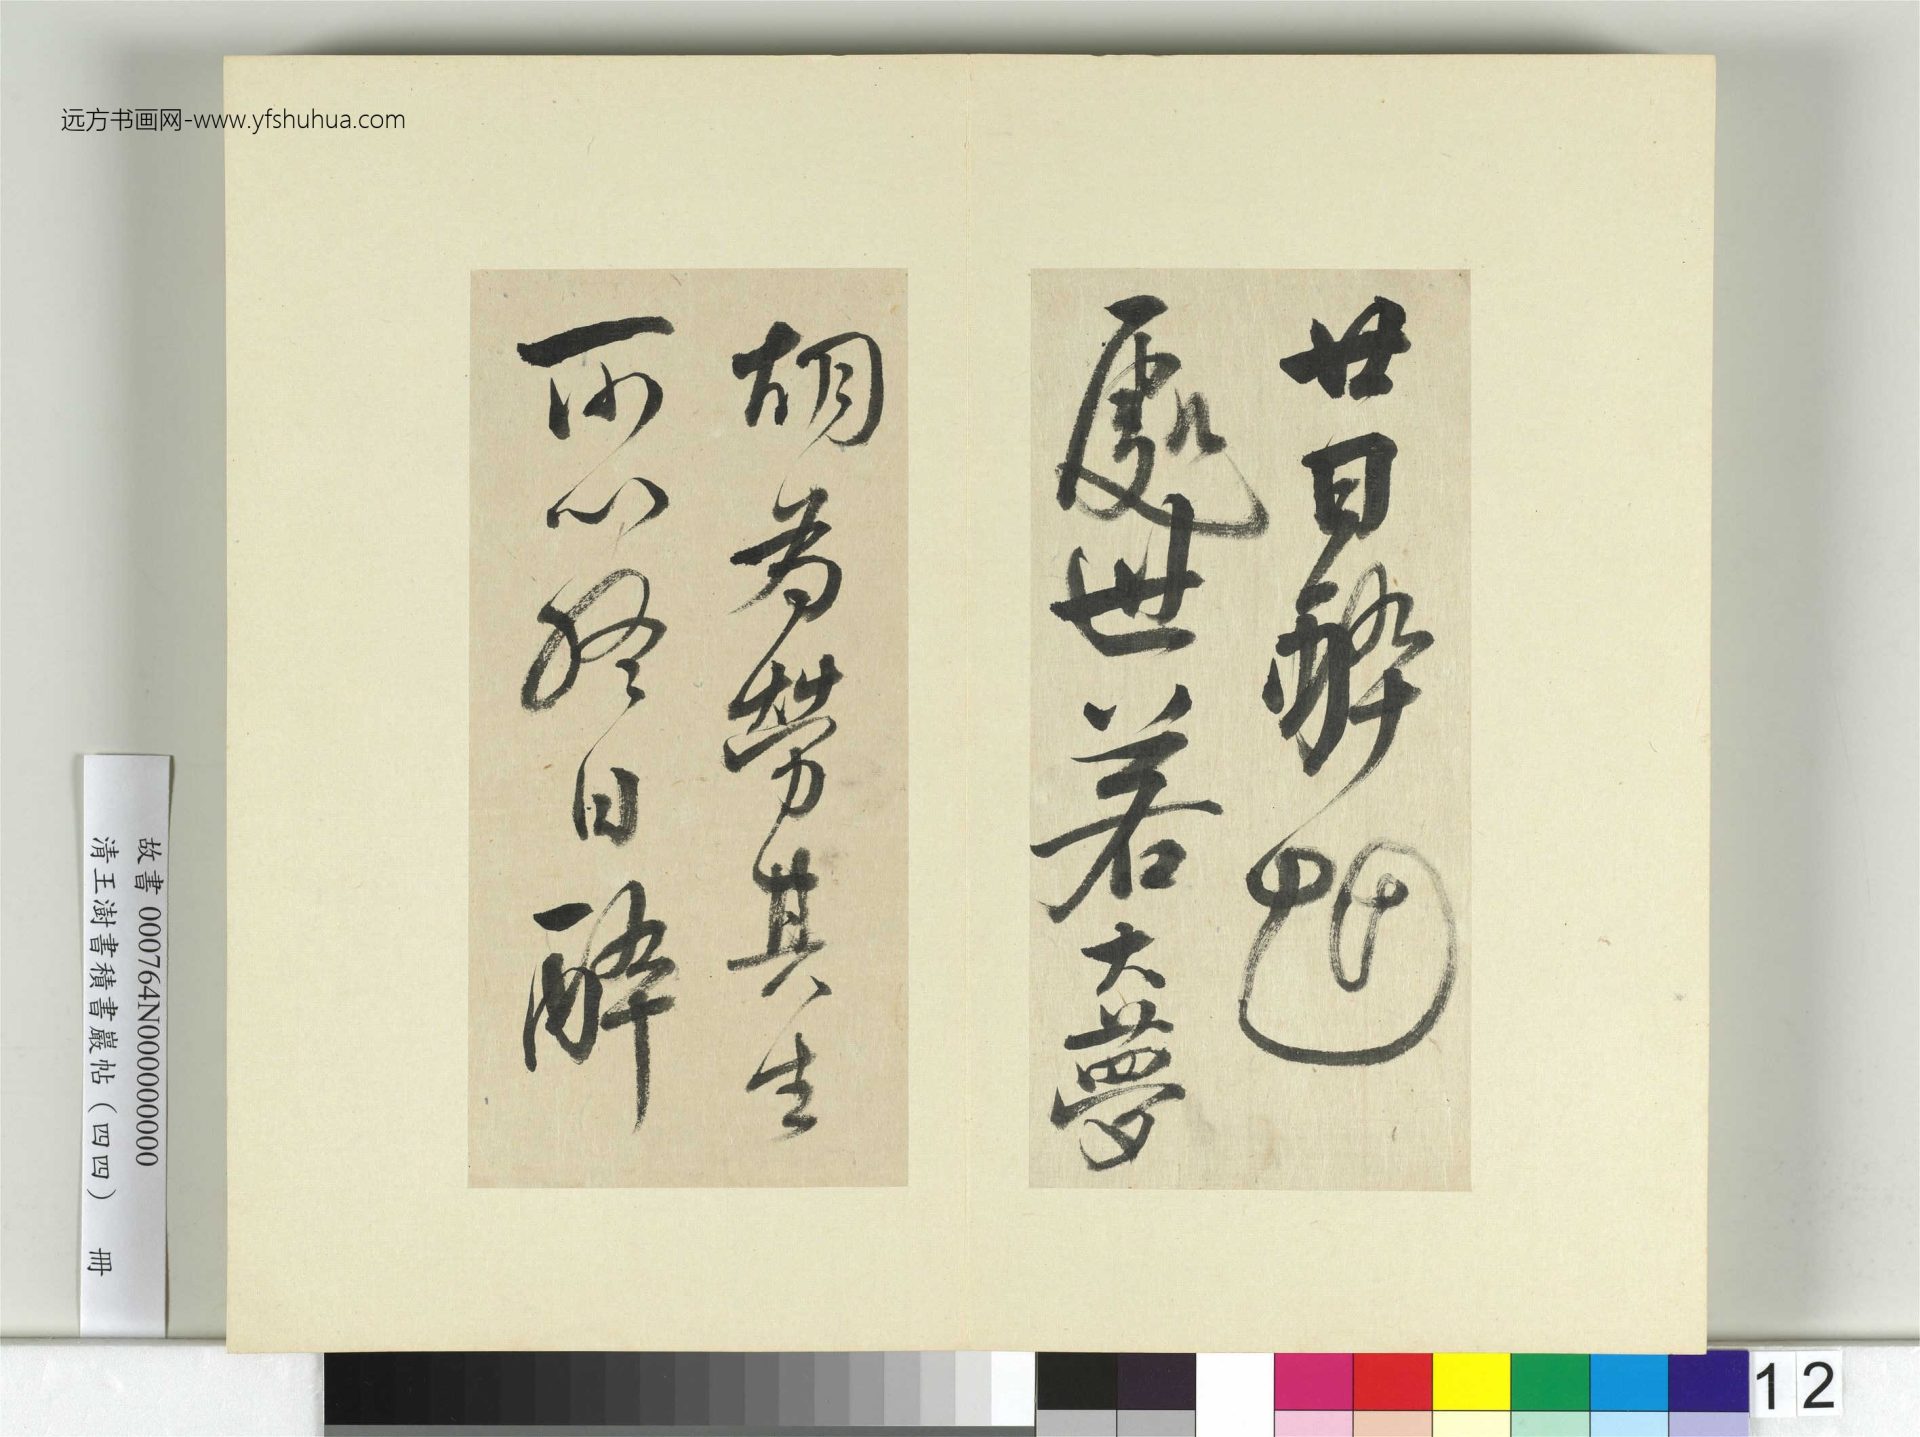 远方书画网-www.yfshuhua.com
廿日醉艸
處世若大夢
胡為勞其生
所以終日醉
故書 000764N000000000
清王澍書積書巖帖（四四） 冊
12